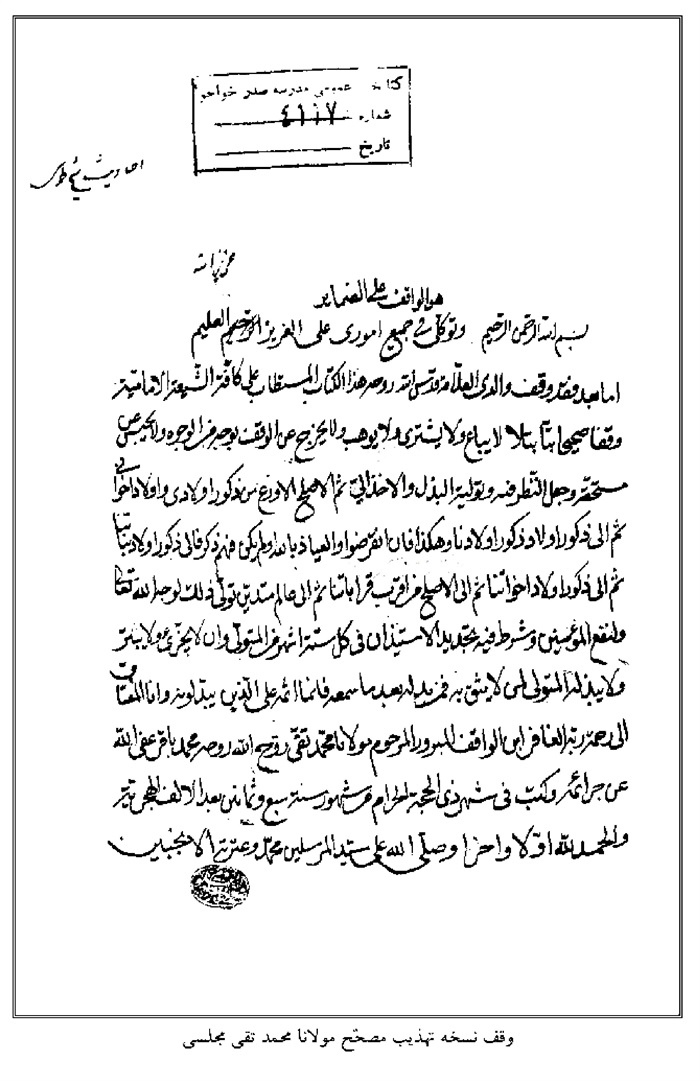 کتابخانه عمومی مدرسه صدر خواجو
شماره ٤١١٧
تاریخ
احادیث شیخ طوسی
هو الواقف علی الضمایر
بسم الله الرحمن الرحیم وتوکلی فی جمیع اموری علی العزیز الرحیم العلیم
اما بعد فقد وقف والدی العلامة قدس الله روحه هذا الکتاب المستطاب علی کافة الشیعة الامامیة
وقفا صحیحا بتا بتلا لا یباع ولا یشتری ولا یوهب ولا یخرج عن الوقف بوجه من الوجوه ولا یحبس عن
مستحقه وجعل النظر فیه وتولیة البذل والاخذ الی ثم الاصلح الاورع من ذکور اولادی واولاد اخوانی
ثم الی ذکور اولاد ذکور اولادنا وهکذا فان انقرضوا والعیاذ بالله ولم یکن فیهم ذکر فالی ذکور اولاد بناتنا
ثم الی ذکور اولاد اخواتنا ثم الی الاصلح من اقرب قراباتنا ثم الی عالم متدین تولی ذلک لوجه الله تعالی
ولنفع المؤمنین وشرط فیه تجدید الاستیذان فی کل ستة اشهر من المتولی وان لا یجزی ولا یبتر
ولا یبذله المتولی لمن لا یثق به فمن بدله بعد ما سمعه فانما اثمه علی الذین یبدلونه وانا المفتاق
الی رحمة ربه الغافر ابن الواقف المبرور المرحوم مولانا محمد تقی روح الله روحه محمد باقر عفی الله
عن جرائمه وکتب فی شهر ذی الحجة الحرام من شهور سنة سبع وثمانین بعد الالف الهجریة
والحمد لله اولا واخرا وصلی الله علی سید المرسلین محمد وعترته الانجبین
وقف نسخه تهذیب مصحّح مولانا محمد تقی مجلسی